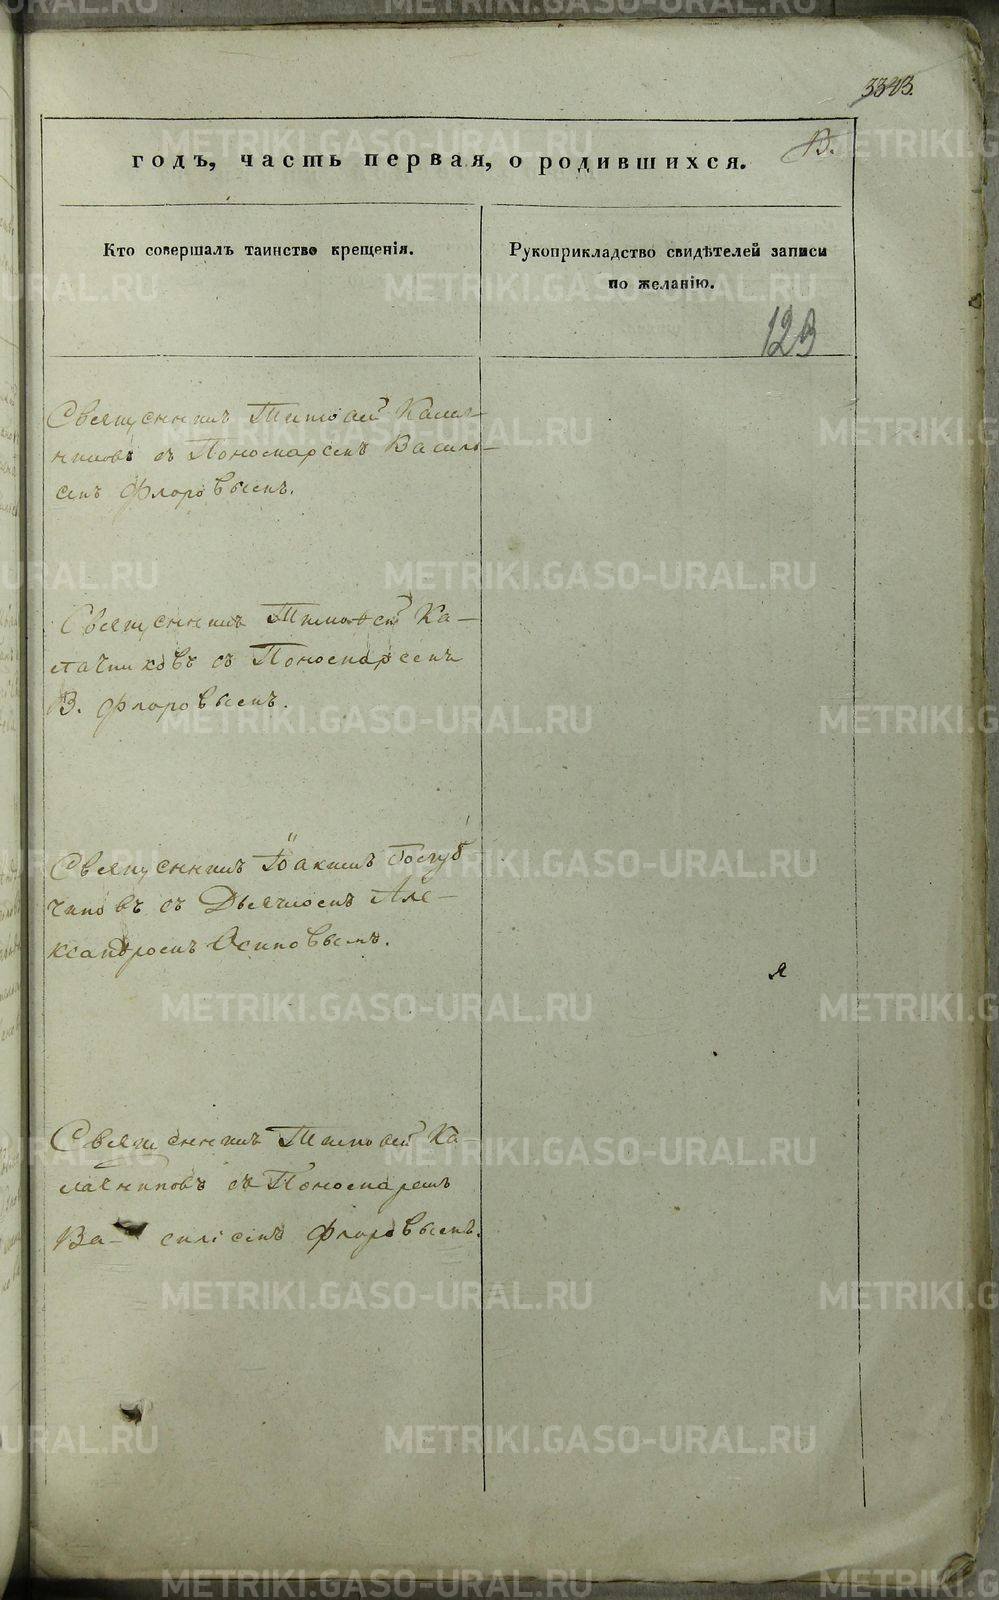 3343.
годъ, часть первая, о родившихся.
В.
Кто совершалъ таинство крещенія.
Рукоприкладство свидѣтелей записи
по желанію.
123
Священникъ Тимофей Калач-
никовъ съ Пономаремъ Василь-
емъ Флоровымъ.
Священникъ Тимофей Ка-
лачниковъ съ Пономаремъ
В. Флоровымъ.
Священникъ Іоакимъ
съ Дьячкомъ Але-
ксандромъ Осиповымъ.
я
Священникъ Тимофей Ка-
лачниковъ съ Пономаремъ
Ва- силіемъ Флоровымъ.
METRIKI.GASO-URAL.RU